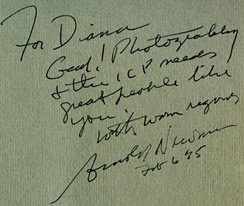 For Diana
God! Photography
& the ICP needs
great people like
you!
with warm regards
Arnold Newman
Feb 6 95